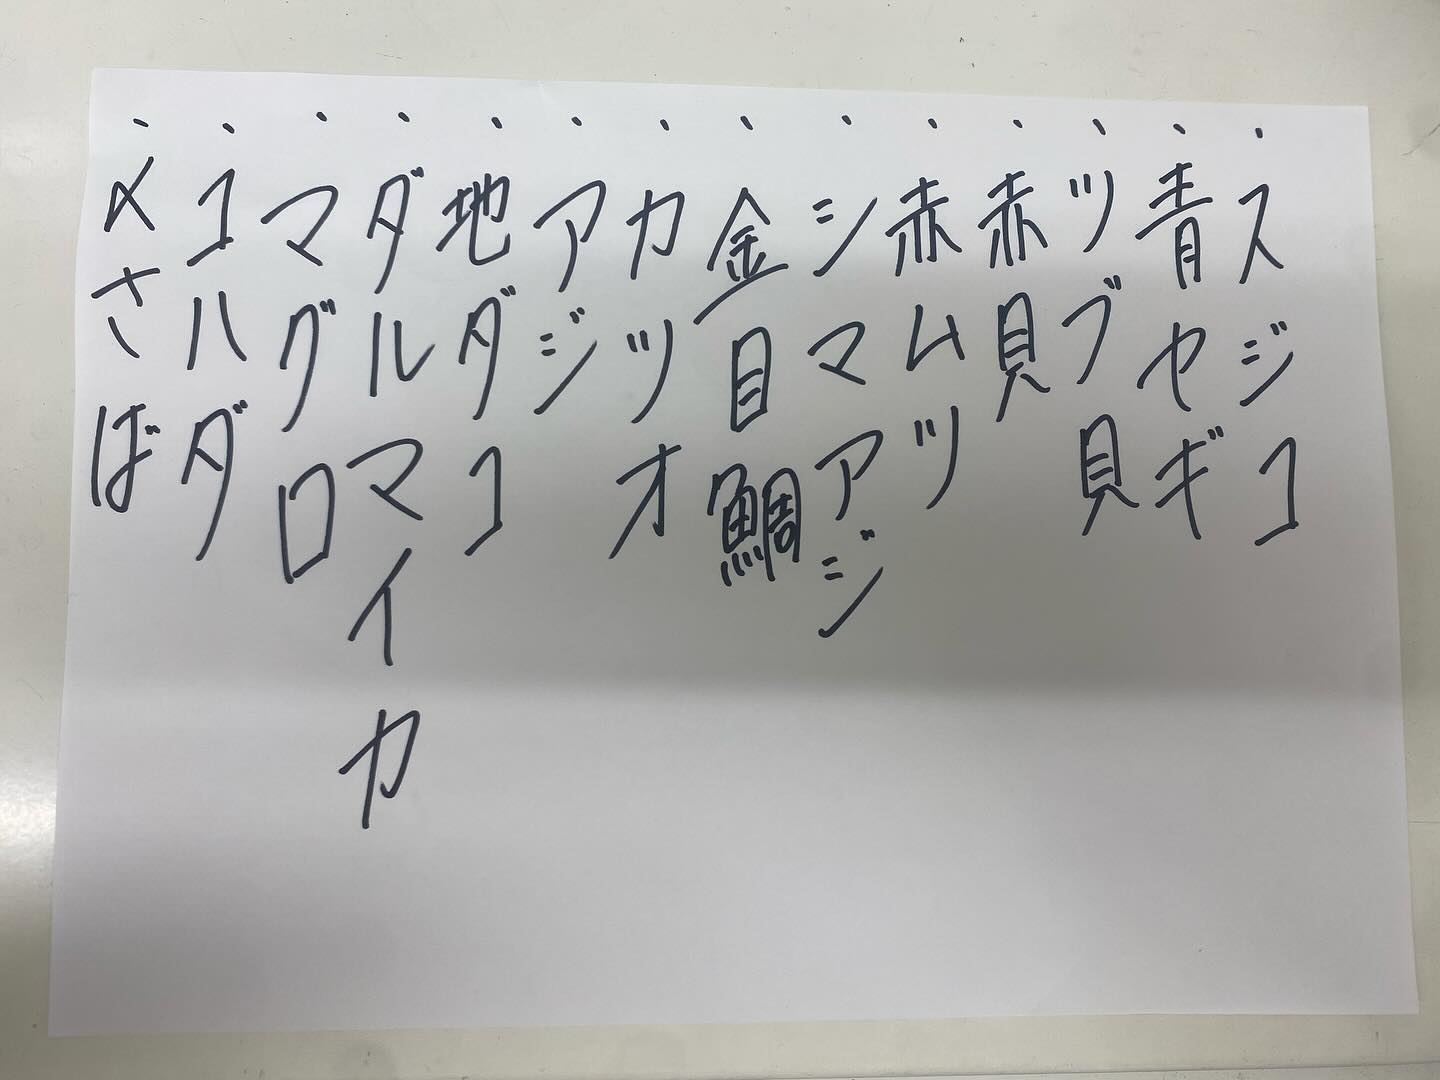 ・スジコ
・青ヤギ
・ツブ貝
・赤貝
・赤ムツ
・シマアジ
・金目鯛
・カツオ
・アジ
・地ダコ
・ダルマイカ
・マグロ
・コハダ
・〆さば